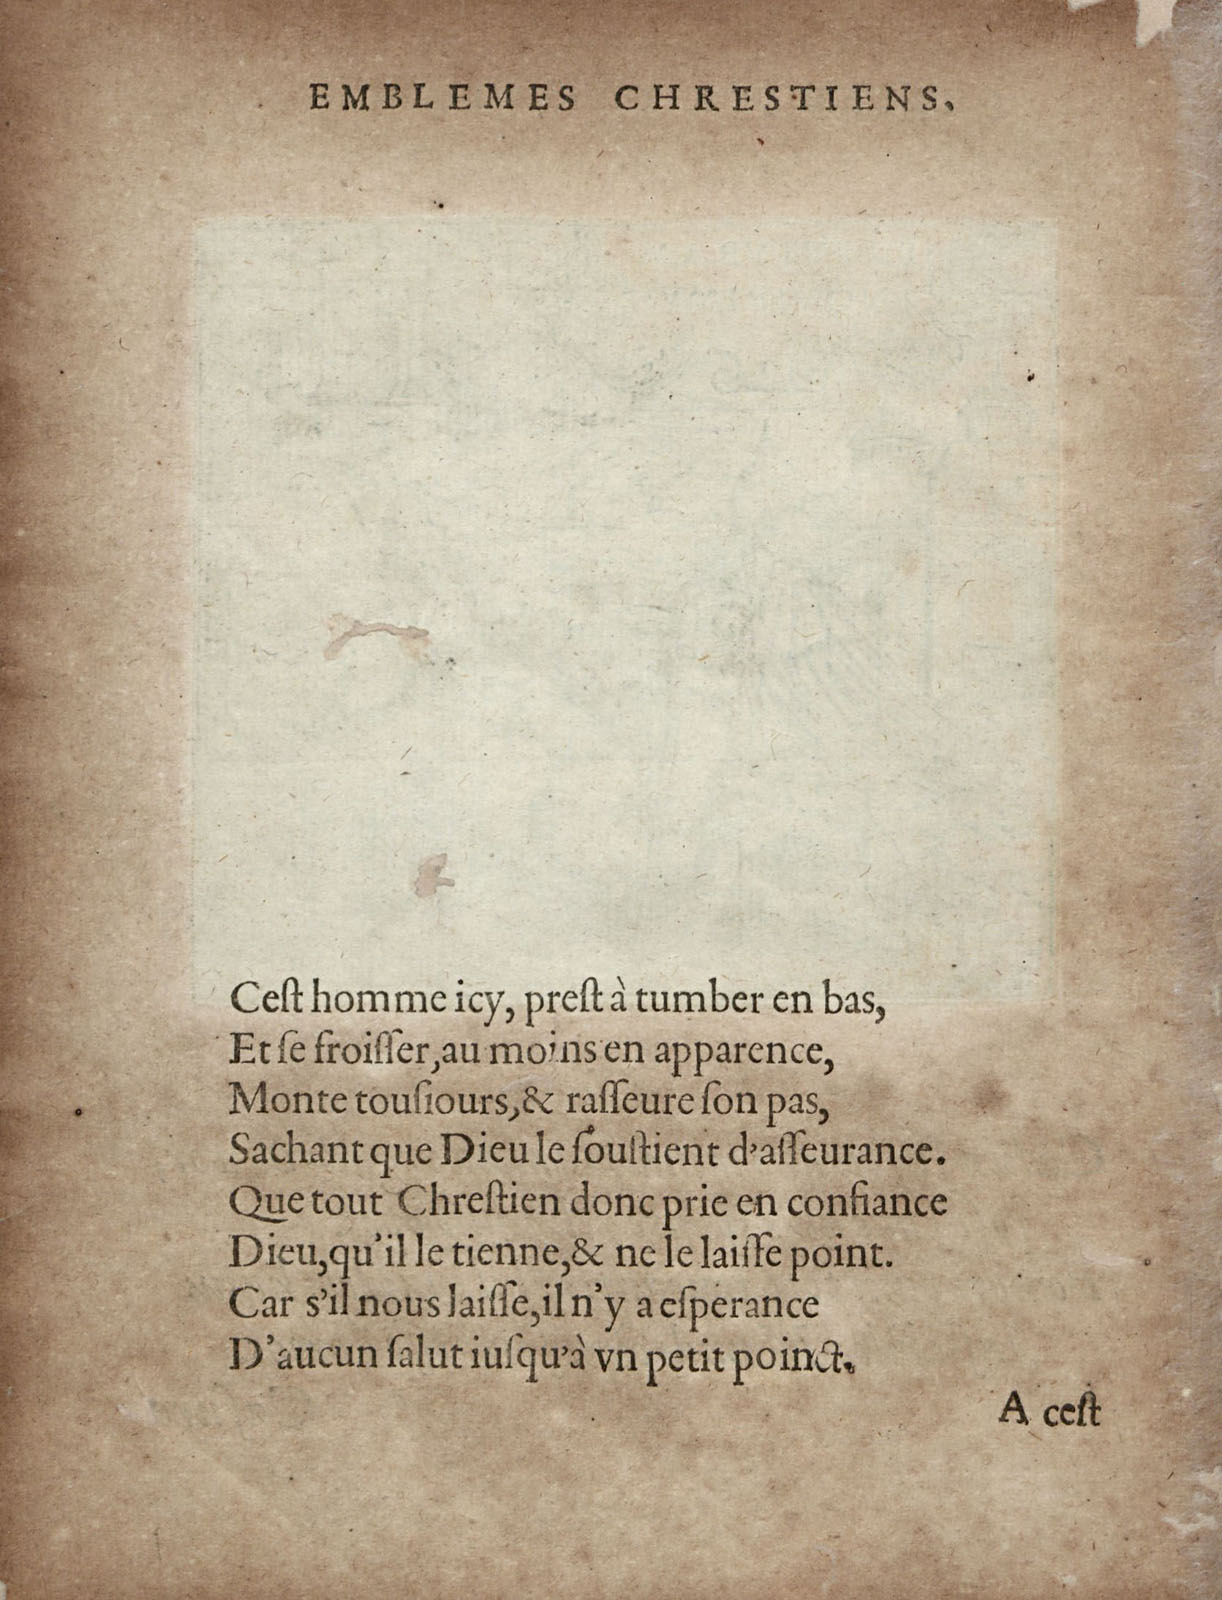 EMBLEMES CHRESTIENS.
Ceſt homme icy, preſt à tumber en bas,
Et ſe froiſſer, au moins en apparence,
Monte touſiours, & raſſeure ſon pas,
Sachant que Dieu le ſouſtient d'aſſeurance.
Que tout Chreſtien donc prie en confiance
Dieu, qu'il le tienne, & ne le laiſſe point.
Car s'il nous laiſſe, il n'y a eſperance
D'aucun ſalut iuſqu'à vn petit poinct.
A ceſt